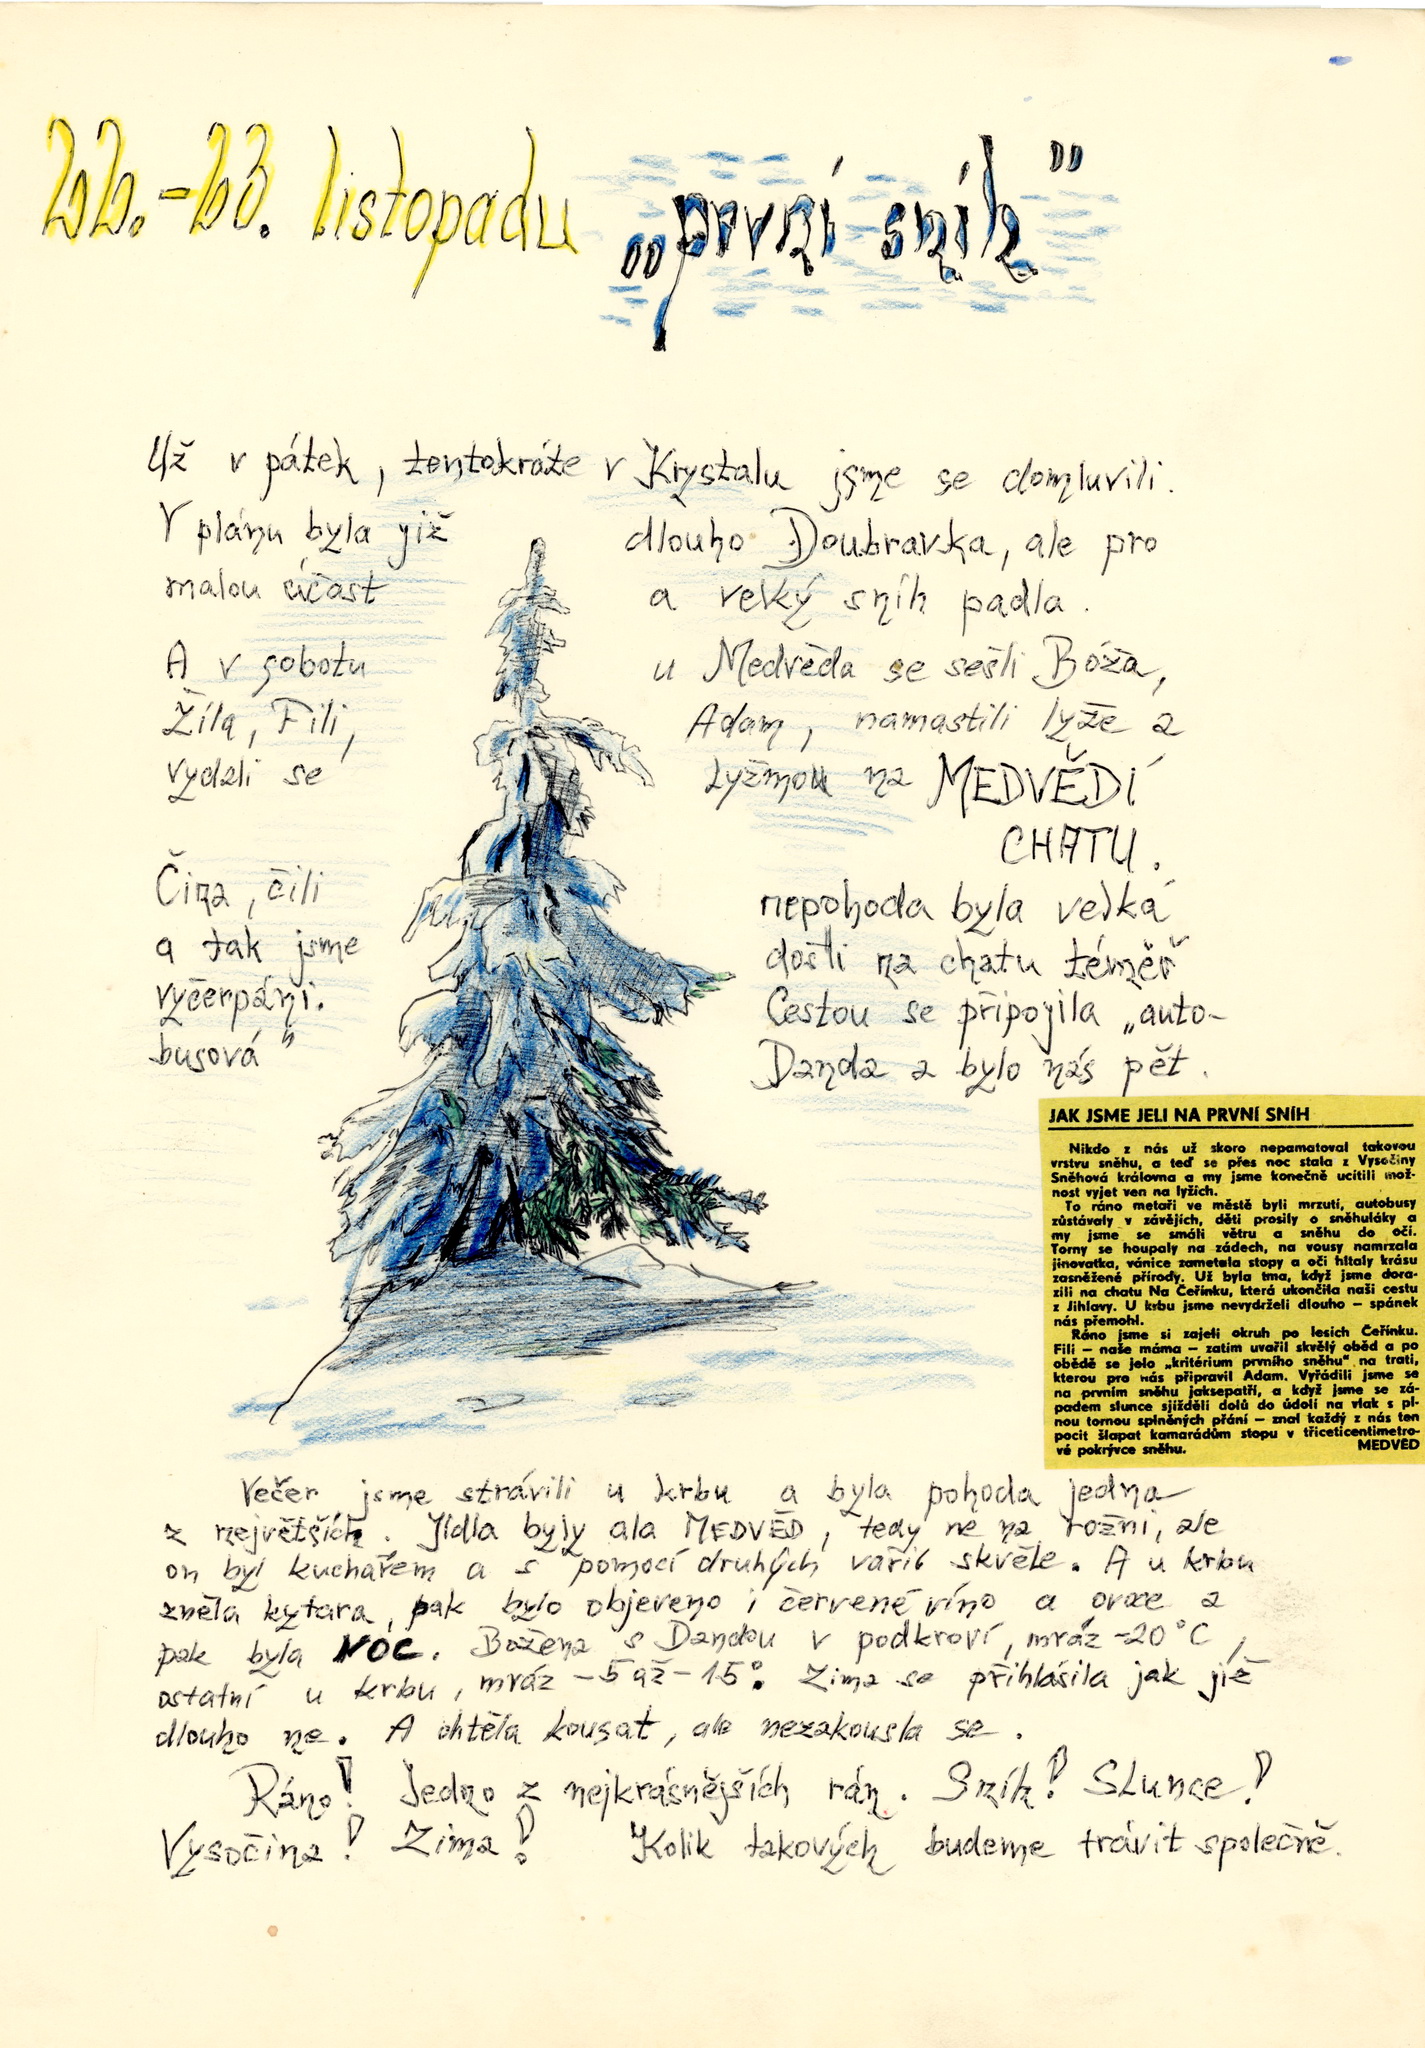 22.-23. listopadu „první sníh"
Už v pátek, tentokráte v Krystalu jsme se domluvili.
V plánu byla již dlouho Doubravka, ale pro
malou účast a velký sníh padla.
A v sobotu u Medvěda se sešli Bóža,
Žíla, Fili, Adam, namastili lyže a
vydali se Lyžmou na MEDVĚDÍ
CHATU.
Čina, čili nepohoda byla velká
a tak jsme došli na chatu téměř
vyčerpáni. Cestou se připojila „auto-
busová" Danda a bylo nás pět.
JAK JSME JELI NA PRVNÍ SNÍH
Nikdo z nás už skoro nepamatoval takovou
vrstvu sněhu, a teď se přes noc stala z Vysočiny
Sněhová královna a my jsme konečně ucítili mož-
nost vyjet ven na lyžích.
To ráno metaři ve městě byli mrzutí, autobusy
zůstávaly v závějích, děti prosily o sněhuláky a
my jsme se smáli větru a sněhu do očí.
Torny se houpaly na zádech, na vousy namrzala
jinovatka, vánice zametala stopy a oči hltaly krásu
zasněžené přírody. Už byla tma, když jsme dora-
zili na chatu Na Čeřínku, která ukončila naši cestu
z Jihlavy. U krbu jsme nevydrželi dlouho — spánek
nás přemohl.
Ráno jsme si zajeli okruh po lesích Čeřínku.
Fili — naše máma — zatím uvařil skvělý oběd a po
obědě se jelo „kritérium prvního sněhu" na trati,
kterou pro nás připravil Adam. Vyřádili jsme se
na prvním sněhu jaksepatří, a když jsme se zá-
padem slunce sjížděli dolů do údolí na vlak s pl-
nou tornou splněných přání — znal každý z nás ten
pocit šlapat kamarádům stopu v třiceticentimetro-
vé pokrývce sněhu. MEDVĚD
Večer jsme strávili u krbu a byla pohoda jedna
z největších. Jídla byly ala MEDVĚD, tedy ne na rožni, ale
on byl kuchařem a s pomocí druhých vařil skvěle. A u krbu
zněla kytara, pak bylo objeveno i červené víno a ovoce a
pak byla NOC. Božena s Dandou v podkroví, mráz -20°C,
ostatní u krbu, mráz -5 až -15°. Zima se přihlásila jak již
dlouho ne. A chtěla kousat, ale nezakousla se.
Ráno! Jedno z nejkrásnějších rán. Sníh! Slunce!
Vysočina! Zima! Kolik takových budeme trávit společně.